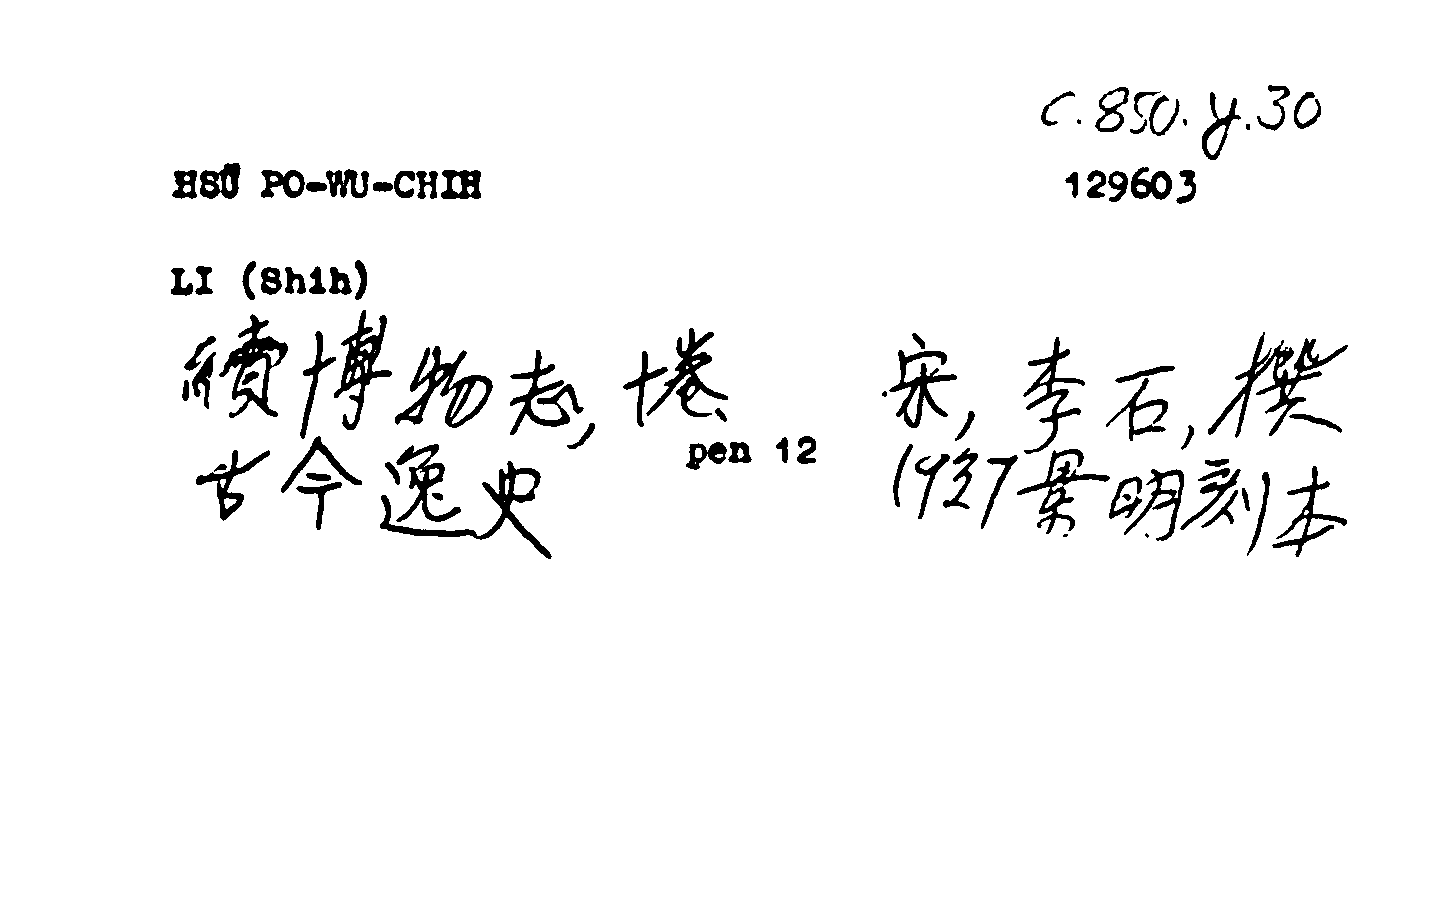 C.850.y.30
HSÜ PO-WU-CHIH 129603
LI (Shih)
續博物志, 十卷 宋, 李石, 撰
古今逸史 pen 12 1937景明刻本